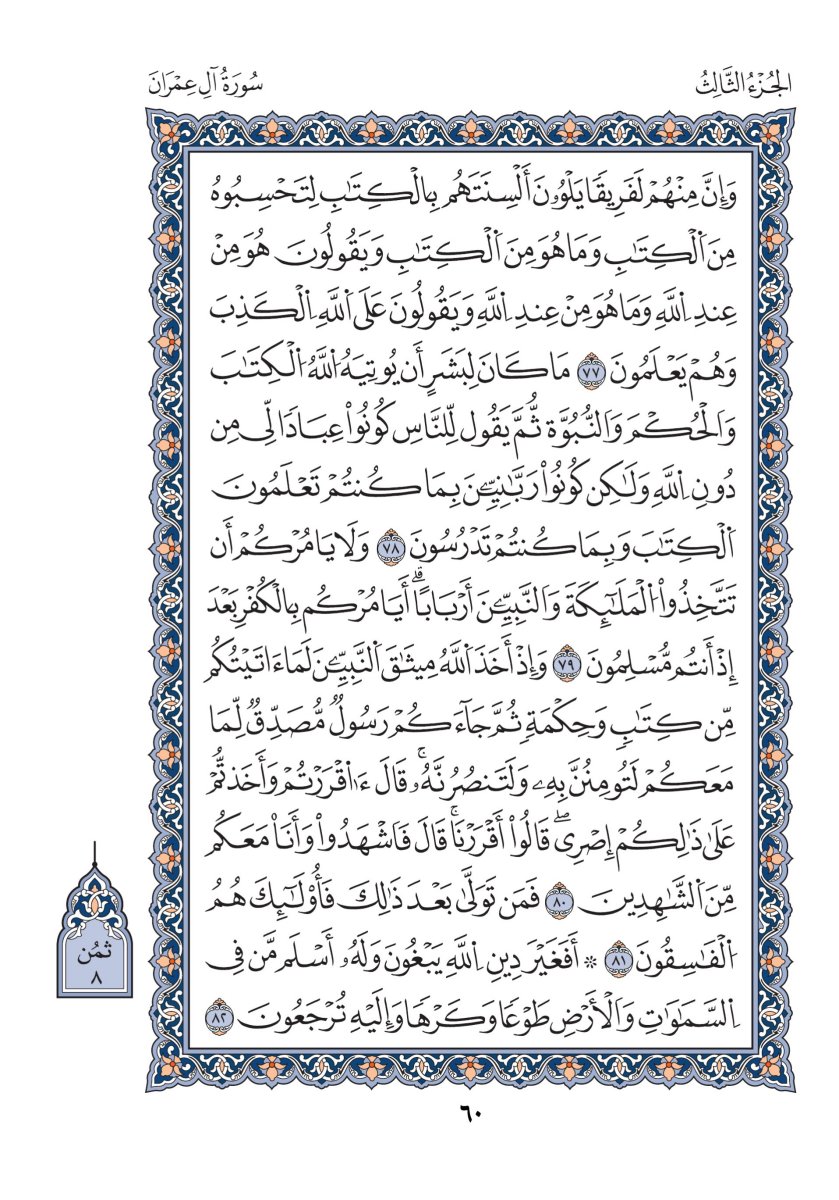 الجُزْءُ الثَّالِثُ
سُورَةُ آلِ عِمْرَانَ
وَإِنَّ مِنْهُمْ لَفَرِيقٗا يَلْوُۥنَ أَلْسِنَتَهُم بِالْكِتَٰبِ لِتَحْسِبُوهُ
مِنَ اَ۬لْكِتَٰبِ وَمَا هُوَ مِنَ اَ۬لْكِتَٰبِ وَيَقُولُونَ هُوَ مِنْ
عِندِ اِ۬للَّهِ وَمَا هُوَ مِنْ عِندِ اِ۬للَّهِ وَيَقُولُونَ عَلَى اَ۬للَّهِ اِ۬لْكَذِبَ
وَهُمْ يَعْلَمُونَ ٧٧ مَا كَانَ لِبَشَرٍ أَن يُوتِيَهُ اُ۬للَّهُ اُ۬لْكِتَٰبَ
وَالْحُكْمَ وَالنُّبُوَّة ثُّمَّ يَقُول لِّلنَّاسِ كُونُواْ عِبَادٗا لِّي مِن
دُونِ اِ۬للَّهِ وَلَٰكِن كُونُواْ رَبَّٰنِيِّـۧنَ بِمَا كُنتُمْ تَعْلَمُونَ
اَ۬لْكِتَٰبَ وَبِمَا كُنتُمْ تَدْرُسُونَ ٧٨ وَلَا يَامُرْكُمْ أَن
تَتَّخِذُواْ اُ۬لْمَلَٰٓئِكَةَ وَالنَّبِيِّـۧنَ أَرْبَاباًۗ أَيَامُرْكُم بِالْكُفْرِ بَعْدَ
إِذْ أَنتُم مُّسْلِمُونَ ٧٩ وَإِذْ أَخَذَ اَ۬للَّهُ مِيثَٰقَ اَ۬لنَّبِيِّـۧنَ لَمَا ءَاتَيْتُكُم
مِّن كِتَٰبٖ وَحِكْمَةٖ ثُمَّ جَآءَكُمْ رَسُولٞ مُّصَدِّقٞ لِّمَا
مَعَكُمْ لَتُومِنُنَّ بِهِۦ وَلَتَنصُرُنَّهُۥۚ قَالَ ءَا۬قْرَرْتُمْ وَأَخَذتُّمْ
عَلَىٰ ذَٰلِكُمْ إِصْرِيۖ قَالُواْ أَقْرَرْنَاۚ قَالَ فَاشْهَدُواْ وَأَنَا۠ مَعَكُم
مِّنَ اَ۬لشَّٰهِدِينَ ٨٠ فَمَن تَوَلَّىٰ بَعْد ذَّٰلِكَ فَأُوْلَٰٓئِكَ هُمُ
اُ۬لْفَٰسِقُونَ ٨١ ۞ أَفَغَيْرَ دِينِ اِ۬للَّهِ يَبْغُونَ وَلَهُۥ أَسْلَم مَّن فِي
اِ۬لسَّمَٰوَٰتِ وَالْأَرْضِ طَوْعٗا وَكَرْهٗا وَإِلَيْهِ تُرْجَعُونَ ٨٢
ثمُن
٨
٦٠